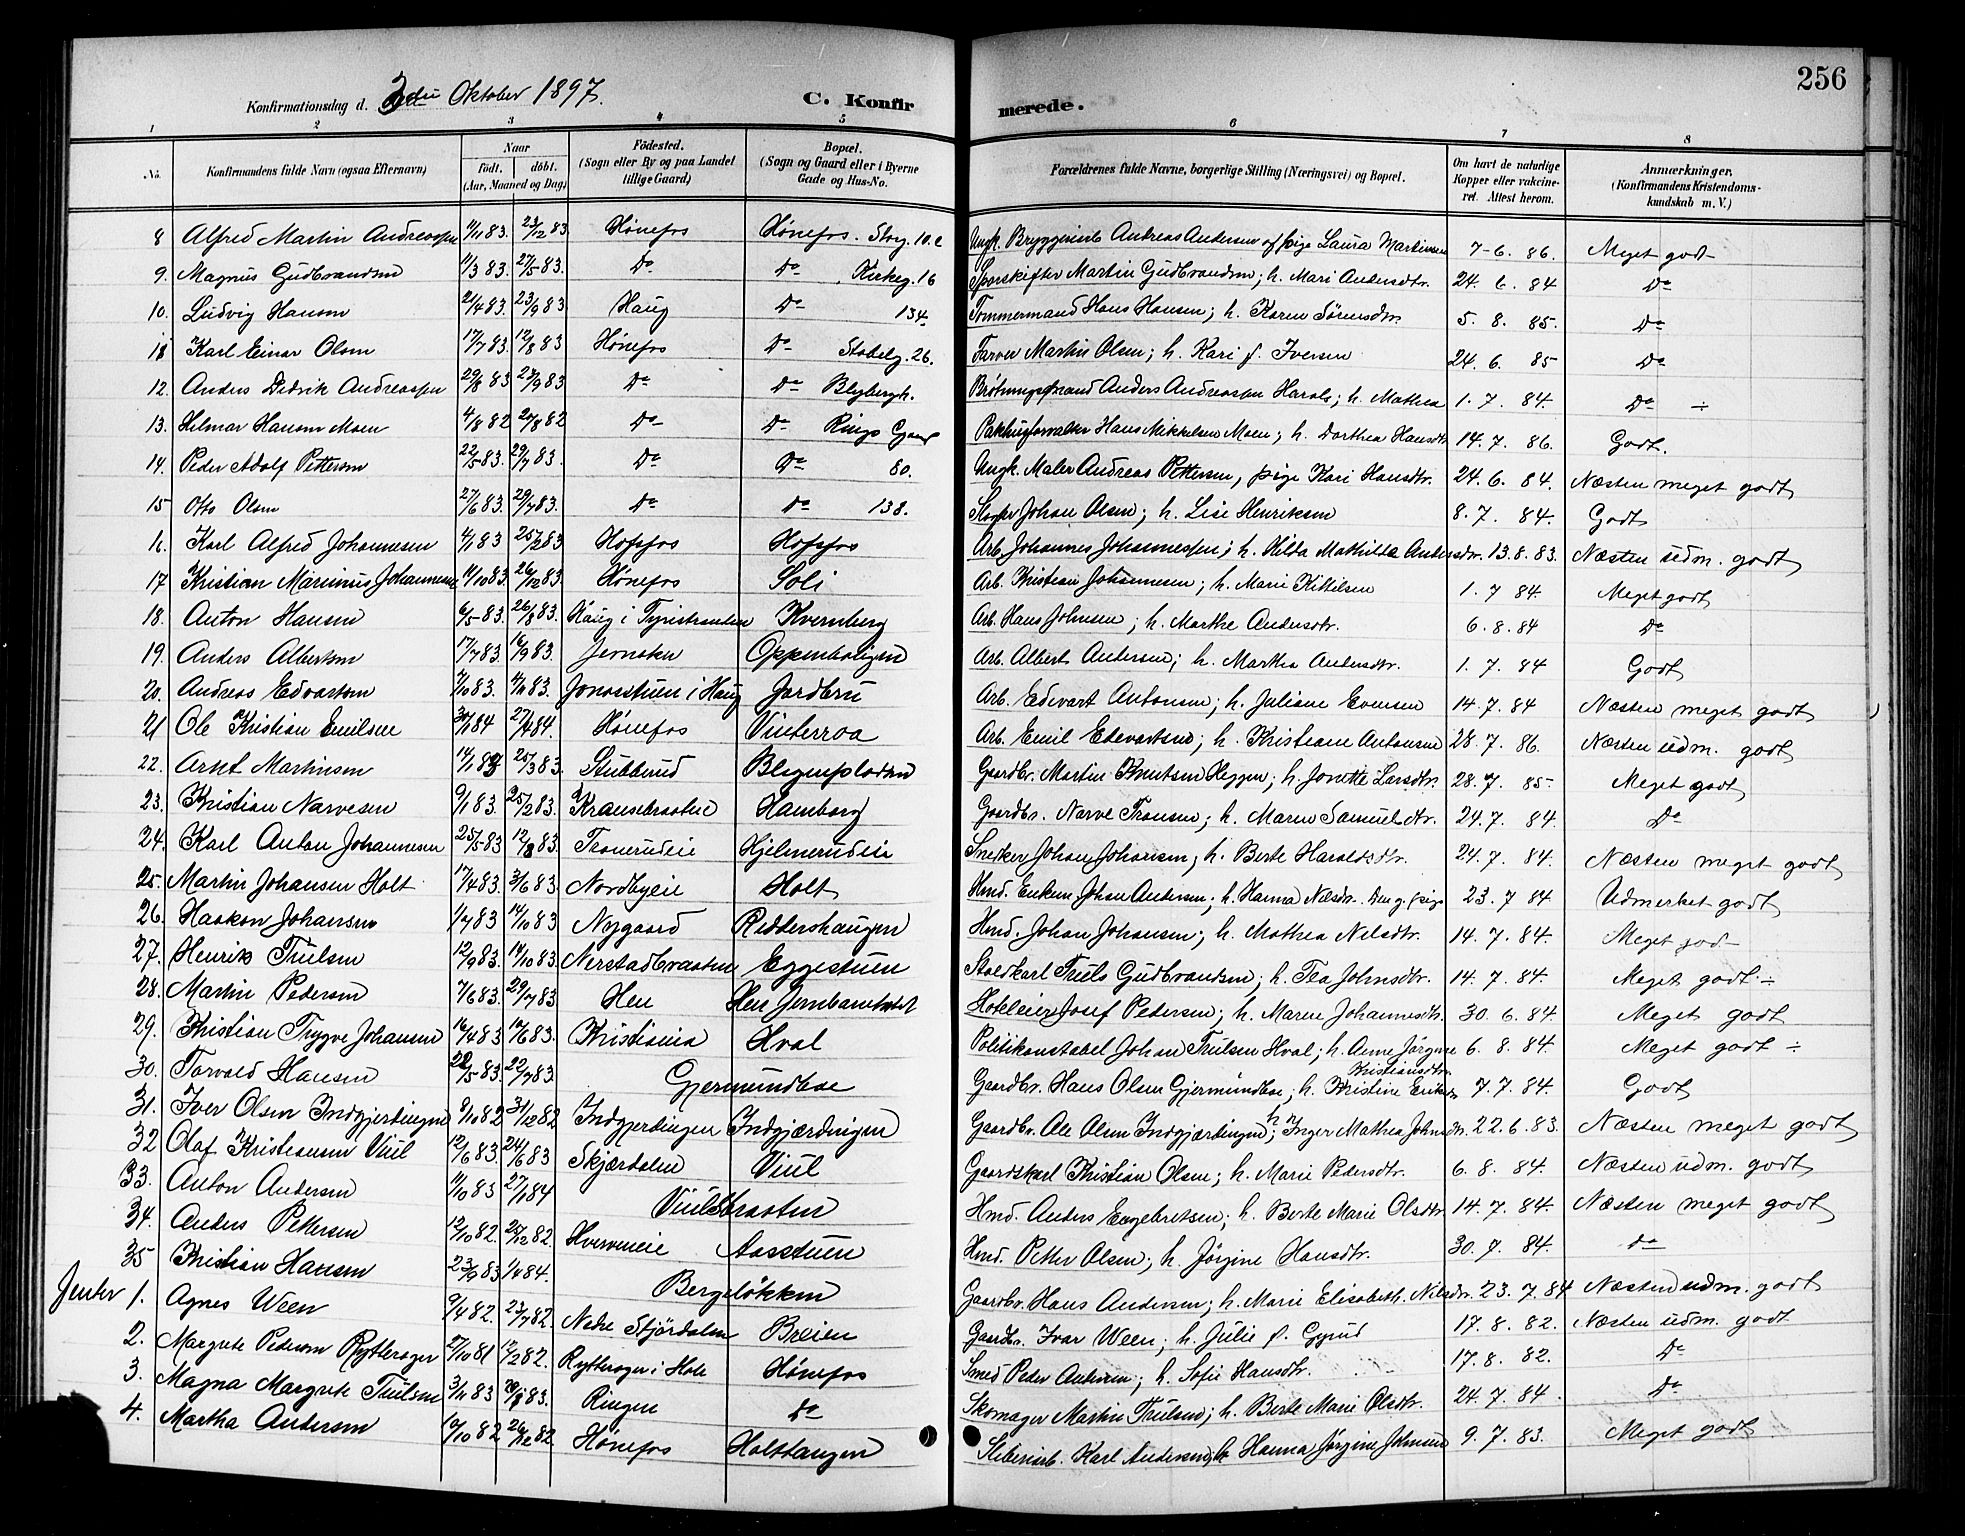 256
Konfirmationsdag d. 3die Oktober 1897. C. Konfirmerede.
1 2 3 4 5 6 7 8
No. Konfirmandens fulde Navn (ogsaa Efternavn) Naar født. døbt. (Aar, Maaned og Dag) Fødested. (Sogn eller By og paa Landet tillige Gaard) Bopæl. (Sogn og Gaard eller i Byerne Gade og Hus-No. Forældrenes fulde Navne, borgerlige Stilling (Næringsvei) og Bopæl. Om havt de naturlige Kopper eller vakcineret. Attest herom. Anmærkninger. (Konfirmandens Kristendomskundskab m. V.)
8 Alfred Martin Andreassen 11/11 83. 23/12 83 Hønefos Hønefos. Storg. 10. Ungk. Bryggeriarb. Andreas Andersen og pige Laura Martinsen 7-6. 86. Meget godt
9. Magnus Gudbrandsen 11/3 83. 27/5 83. Do Do Kirkeg. 16 Martin Gudbrandsen; h. Mari Andersdtr. 24. 6. 84 Do
10. Ludvig Hansen 21/4 83. 23/9 83 Haug Do 134 Tømmermand Hans Hansen; h. Karen Sørensdtr. 5. 8. 85. Do
Karl Einar Olsen 17/7 83. 12/8 83 Hønefos Do Stabelg. 26. Farver Martin Olsen; h. Kari f. Iversen 24. 6. 85 Do
12. Anders Didrik Andreassen 83 23/9 83 Do Do Blybergh. Anders Andreassen; h. Mathea 1. 7. 84. Do ÷
13. Hilmar Hansen Moen 4/8 82 82 Do Do Rings Pakhusforvalter Hans Mikkelsen Moen; h. Dorthea Hansdtr. 14. 7. 86. Godt.
14. Peder Adolf Pettersen 22/5 83. 29/7 83. Do Do 80. Ungk. Maler Andreas Pettersen, pige Kari Hansdtr. 24. 6. 84. Næsten meget godt
15 Otto Olsen 27/6 83. 29/7 83. Do do 138. Johan Olsen; h. Lise Henriksen 8. 7. 84. Godt
16. Karl Alfred Johannesen 4/1 83 25/2 83 Hofsfos Hofsfos Arb. Johannes Johannessen; h. Hilda Mathilde Andersdtr. 13. 8. 83. Næsten udm. godt
17 Kristian Marinius Johannesen 11/10 83. 26/12 83. Hønefos Soli Arb. Kristian Johannesen; h. Marie Kittilsen 1. 7 84. Meget godt
18. Anton Hansen 6/5 83. 26/8 83. Haug i Tyristranden Kvernberg Arb. Hans Johnsen; h. Marthe Andersdtr. 6. 8. 84 Do
19. Anders Albertsen 17/7 83. 16/9 83. Oppenboligen Arb. Albert Andersen; h. Marthea Andersdtr. 1. 7. 84 Godt
20. Andreas Edvartsen 7/10 83. 83. Jonasstuen i Haug Jordbru Arb. Edvart Antonsen; h. Juliane Evensen 14. 7. 84 Næsten meget godt
21 Ole Kristian Emilsen 84 27/4 84. Hønefos Vinterroa Arb. Emil Edvartsen; h. Kristiane Antonsen 28. 7. 86. Næsten udm. godt
22. Arnt Martinsen 14/1 83 25/3 83. Stubberud Martin Knutsen Heggen; h. Jonette Larsdtr. 28. 7. 85. Meget godt
23. Kristian Narvesen 9/1 83. 25/2 83. Hamborg Gaardbr. Narve Tronsen; h. Maren Samuelsdtr. 24. 7. 84. Do
24. Karl Anton Johannesen 25/5 83 12/8 83. Troneudeie Hjelmerudeie Snedker Johan Johansen; h. Berte Haraldsdtr. 24. 7. 84. Næsten meget godt
25. Martin Johansen Holt 17/4 83. 3/6 83 Nordbyeie Holt Hmd. Enkem. Johan Andersen; h. Hanna Nilsdr. 23. 7 84 Udmerket godt
26. Haakon Johansen 1/7 83 14/10 83 Nygaard Reddershaugen Hmd. Johan Johansen; h. Mathea Nilsdtr. 14. 7. 84. Meget godt
27. Henrik Trulsen 12/9 83. 14/10 83. Nerstadbraaten Eggestuen Staldkarl Truls Gudbrandsen; h. Tea Johnsdtr. 14. 7. 84. Meget godt ÷
28. Martin Pedersen 7/6 83. 29/7 83. Hen Hen Jernbanetomt Josef Pedersen; h. Maren Johannesdtr. 30. 6. 84. Meget godt
29. Kristian Trygve Johansen 16/4 83 10/6 83. Kristiania Hval Politikonstabel Johan Trulsen Hval; h. Anne Jørgine Kristiansdtr. 6. 8. 84. Meget godt ÷
30. Torvald Hansen 28/5 83. 22/7 83. Gjermundboe Gaardbr. Hans Olsen Gjermundboe; h. Kristine Eriksdtr 7. 7. 84. Godt
31. Iver Olsen Indgjerdingen 9/10 82 31/12 82 Indgjerdingen Indgjærdingen Gaardbr. Ole Olsen Indgjærdingen; h Inger Mathea Johnsdtr. 22. 6. 83. Næsten meget godt
32 Olaf Kristiansen Viul 12/6 83. 24/6 83 Skjærdalen Viul Gaardskarl Kristian Olsen; h. Marie Pedersdtr. 6. 8. 84. Næsten udm. godt
33. Anton Andersen 11/10 83 27/1 84 Viulsbraaten Hmd. Anders Engebretsen; h. Berte Marie Olsdtr. 14. 7. 84. Næsten meget godt
34. Anders Pettersen 12/10 82. 25/12 82. Hverveneie Aasstuen Hmd. Petter Olsen; h. Jørgine Hansdtr. 30. 7. 84. do
35 Kristian Hansen 23/9 83 1/4 84. Bergsløkken Gaardbr. Hans Andersen; h. Marie Elisabeth Nilsdr. 23. 7. 84 Næsten udm. godt
Jenter 1. Agnes Ween 9/4 82. 23/7 82. Nedre Stjördalen Breien Gaardbr. Ivar Ween; h. Julie f. 17. 8. 82. Næsten udm. godt
2. Margrete Pedersen Rytterager 27/10 81 82. Rytterager i Hole Hønefos Smed Peder Andersen; h. Sofie Hansdtr. 17. 8. 82. Do
3. Magna Margrete Trulsen 3/11 83 83. Ringen Do Skomager Martin Trulsen; h. Berte Marie Olsdtr. 24. 7. 84. Do
4. Martha Andersen 10/10 82 26/12 82. Hønefos Holttangen Sliberiarb. Karl Andersen; h Hanna Jørgine Johnsen 9. 7. 83. Meget godt